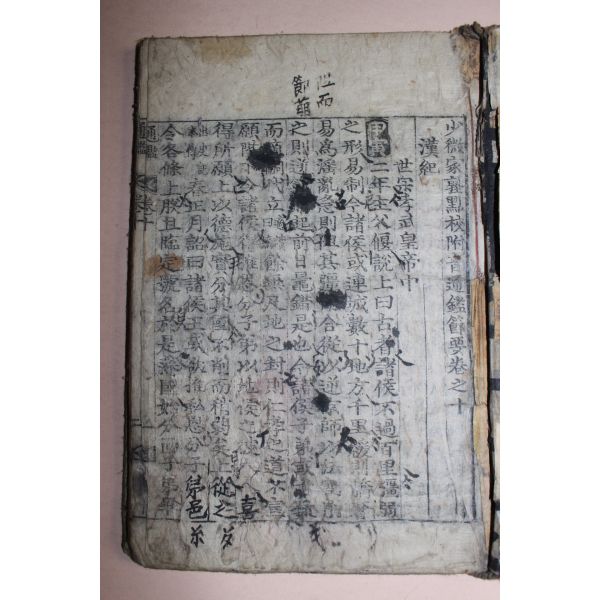 少微家塾點校附音通鑑節要卷之十
漢紀
世宗孝武皇帝中
二年主父偃說上曰古者諸侯不過百里彊弱
之形易制今諸侯或連城數十地方千里緩則驕奢
易爲淫亂急則阻其彊而合從以逆京師以法割削
之則逆節萌起前日鼂錯是也今諸侯子弟或十數
而適嗣代立餘雖骨肉無尺地之封則仁孝之道不宣
願陛下令諸侯得推恩分子弟以地侯之彼
得所願上以德施實分其國不削而稍弱矣上從之
春正月詔曰諸侯王或欲推私恩分子
令各條上朕且臨定號名於是藩國始分而子弟畢
通鑑
卷十
陛而
節萌
喜
弟邑